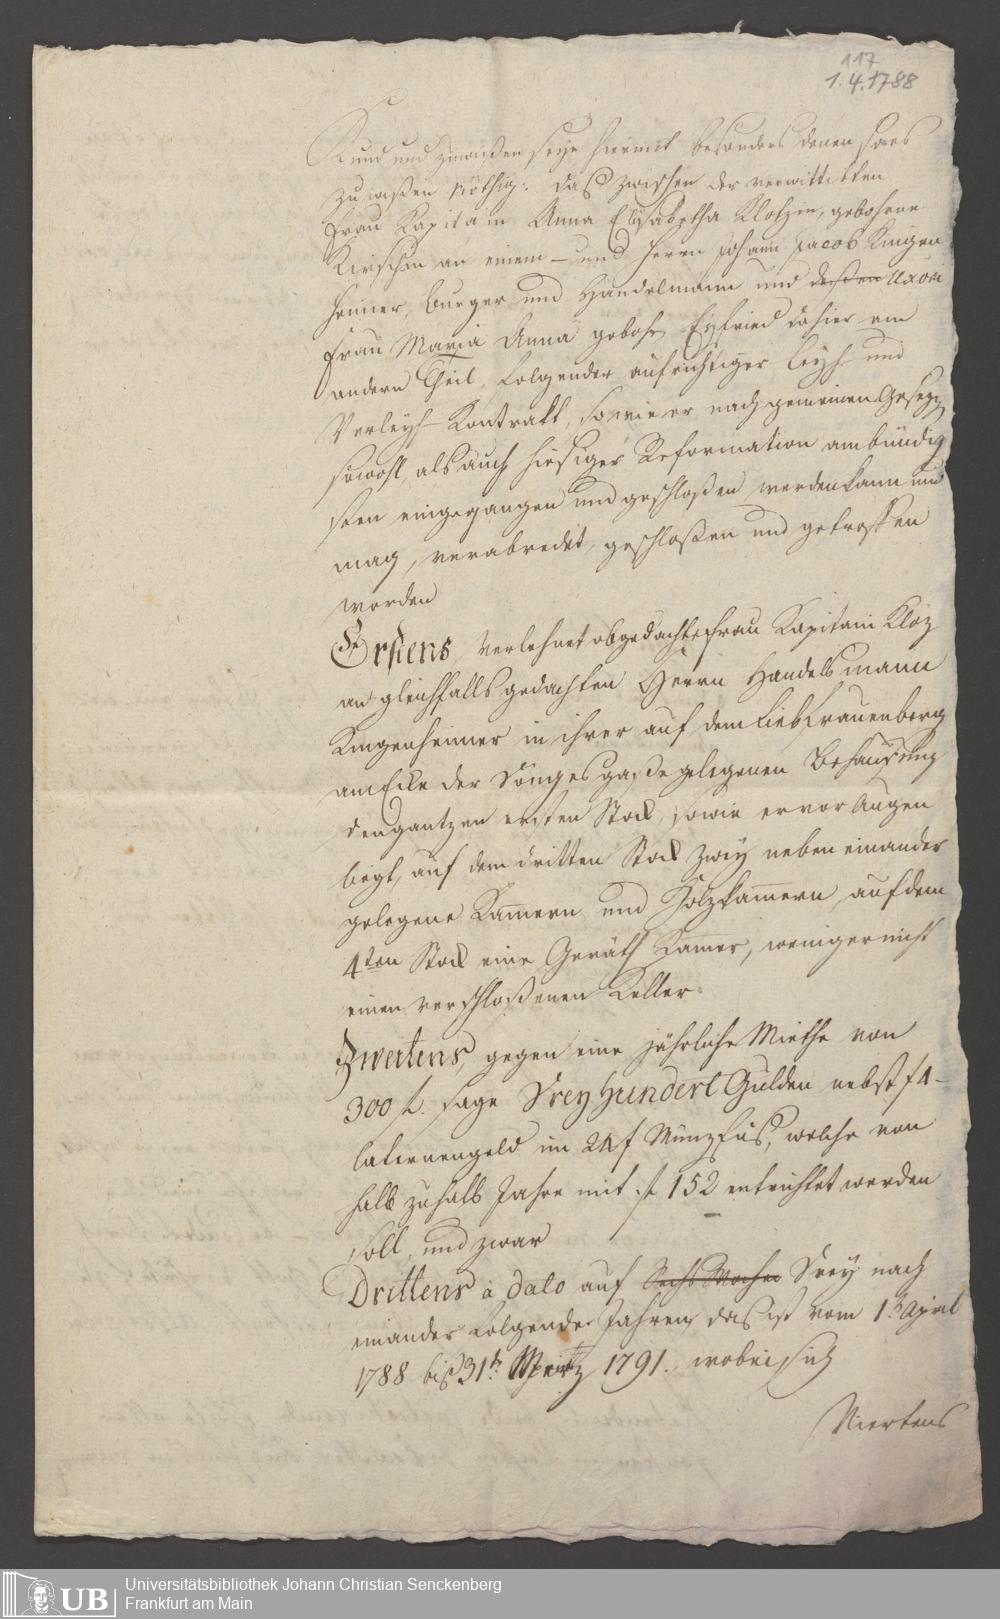 117
1.4.1788
Kund und zuwißen seye hiermit besonders denen so es
zu wißen nöthig: daß zwischen der verwittibten
Frau Kapitain Anna Elisabetha Klotzin, gebohrne
Kirschin an einem – und Herrn Johann Jacob Kingen
heimer, Burger und Handelsmann und deßen Uxori
Frau Maria Anna gebohr Eyfried dahier am
andern Theil, folgender aufrichtiger Leyh- und
Verleyh-Kontrakt, so wie er nach gemeinen Gesezen
sowohl, als auch hiesiger Reformation am bündig
sten eingegangen und geschloßen werden kann und
mag, verabredet, geschloßen und getroffen
worden
Erstens, verlehnet obgedachte Frau Kapitain Kloz
an gleichfalls gedachten Herrn Handelsmann
Kingenheimer in ihrer auf dem Liebfrauenberg
am Eck der Döngesgaße gelegenen Behaußung
den gantzen ersten Stock, so wie er vor Augen
liegt, auf dem dritten Stock zwey neben einander
gelegene Kamern und Holzkamern, auf dem
4ten Stock eine Geräth Kamer, weniger nicht
einen verschloßenen Keller.
Zweitens, gegen eine jährliche Miethe von
300 f. sage Drey Hundert Gulden nebst f 4 –
Laternengeld im 24 f Münzfus, welche von
halb zu halb Jahre mit f 152 entrichtet werden
soll, und zwar
Drittens à dato auf Sechs Wochen Drey nach
einander folgende Jahren, das ist vom 1t April
1788 bis 31t Meirtz 1791., wobei sich
Viertens
Universitätsbibliothek Johann Christian Senckenberg
Frankfurt am Main
UB